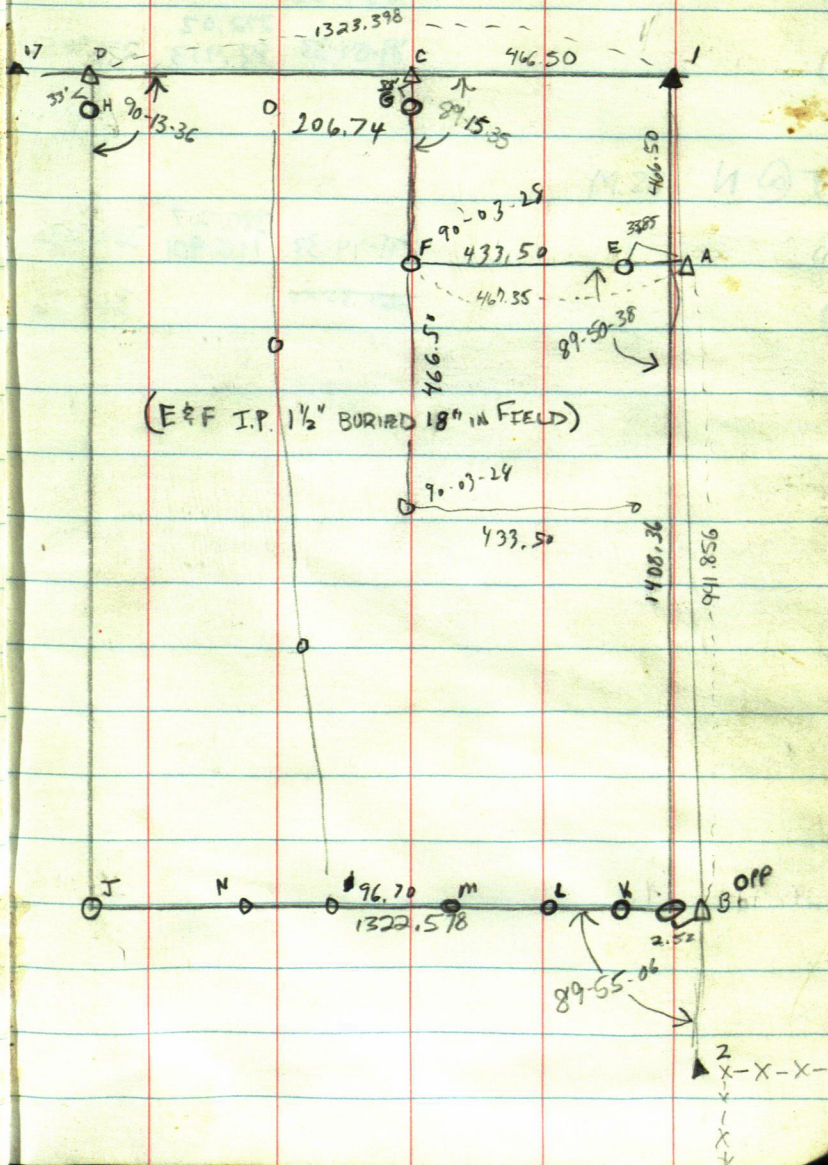 1323.398
17
D
C
466.50
1
33'
H
90-13-36
206.74
G
89-15-35
466.50
90-03-28
F
433.50
E
33.85
A
467.35
89-50-38
466.50
(E & F I.P. 1½" BURIED 18" IN FIELD)
90-03-28
433.50
1408.36
941.856
J
N
96.70
M
L
K
B
OPP
1322.578
2.52
89-55-06
2
X-X-X-
X
X